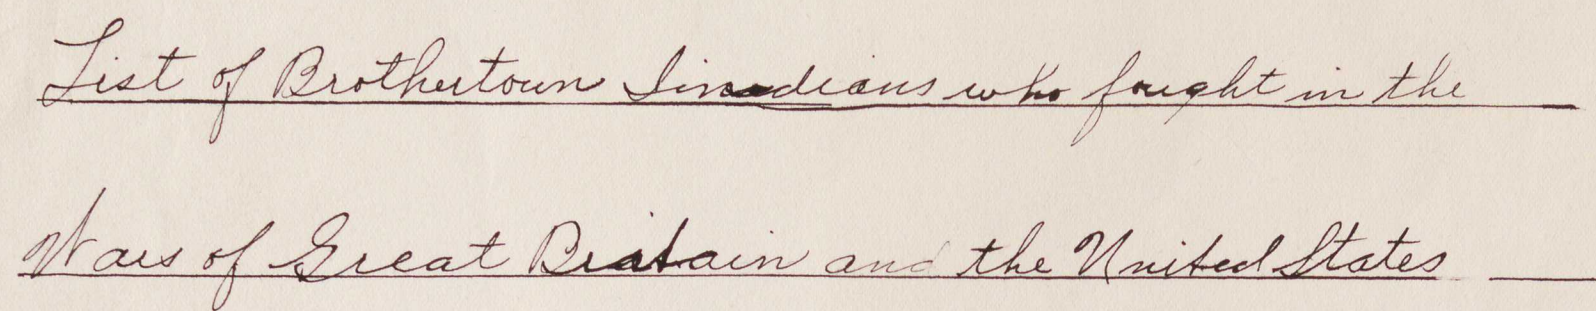 List of Brothertown Indians who fought in the
Wars of Great Britain and the United States